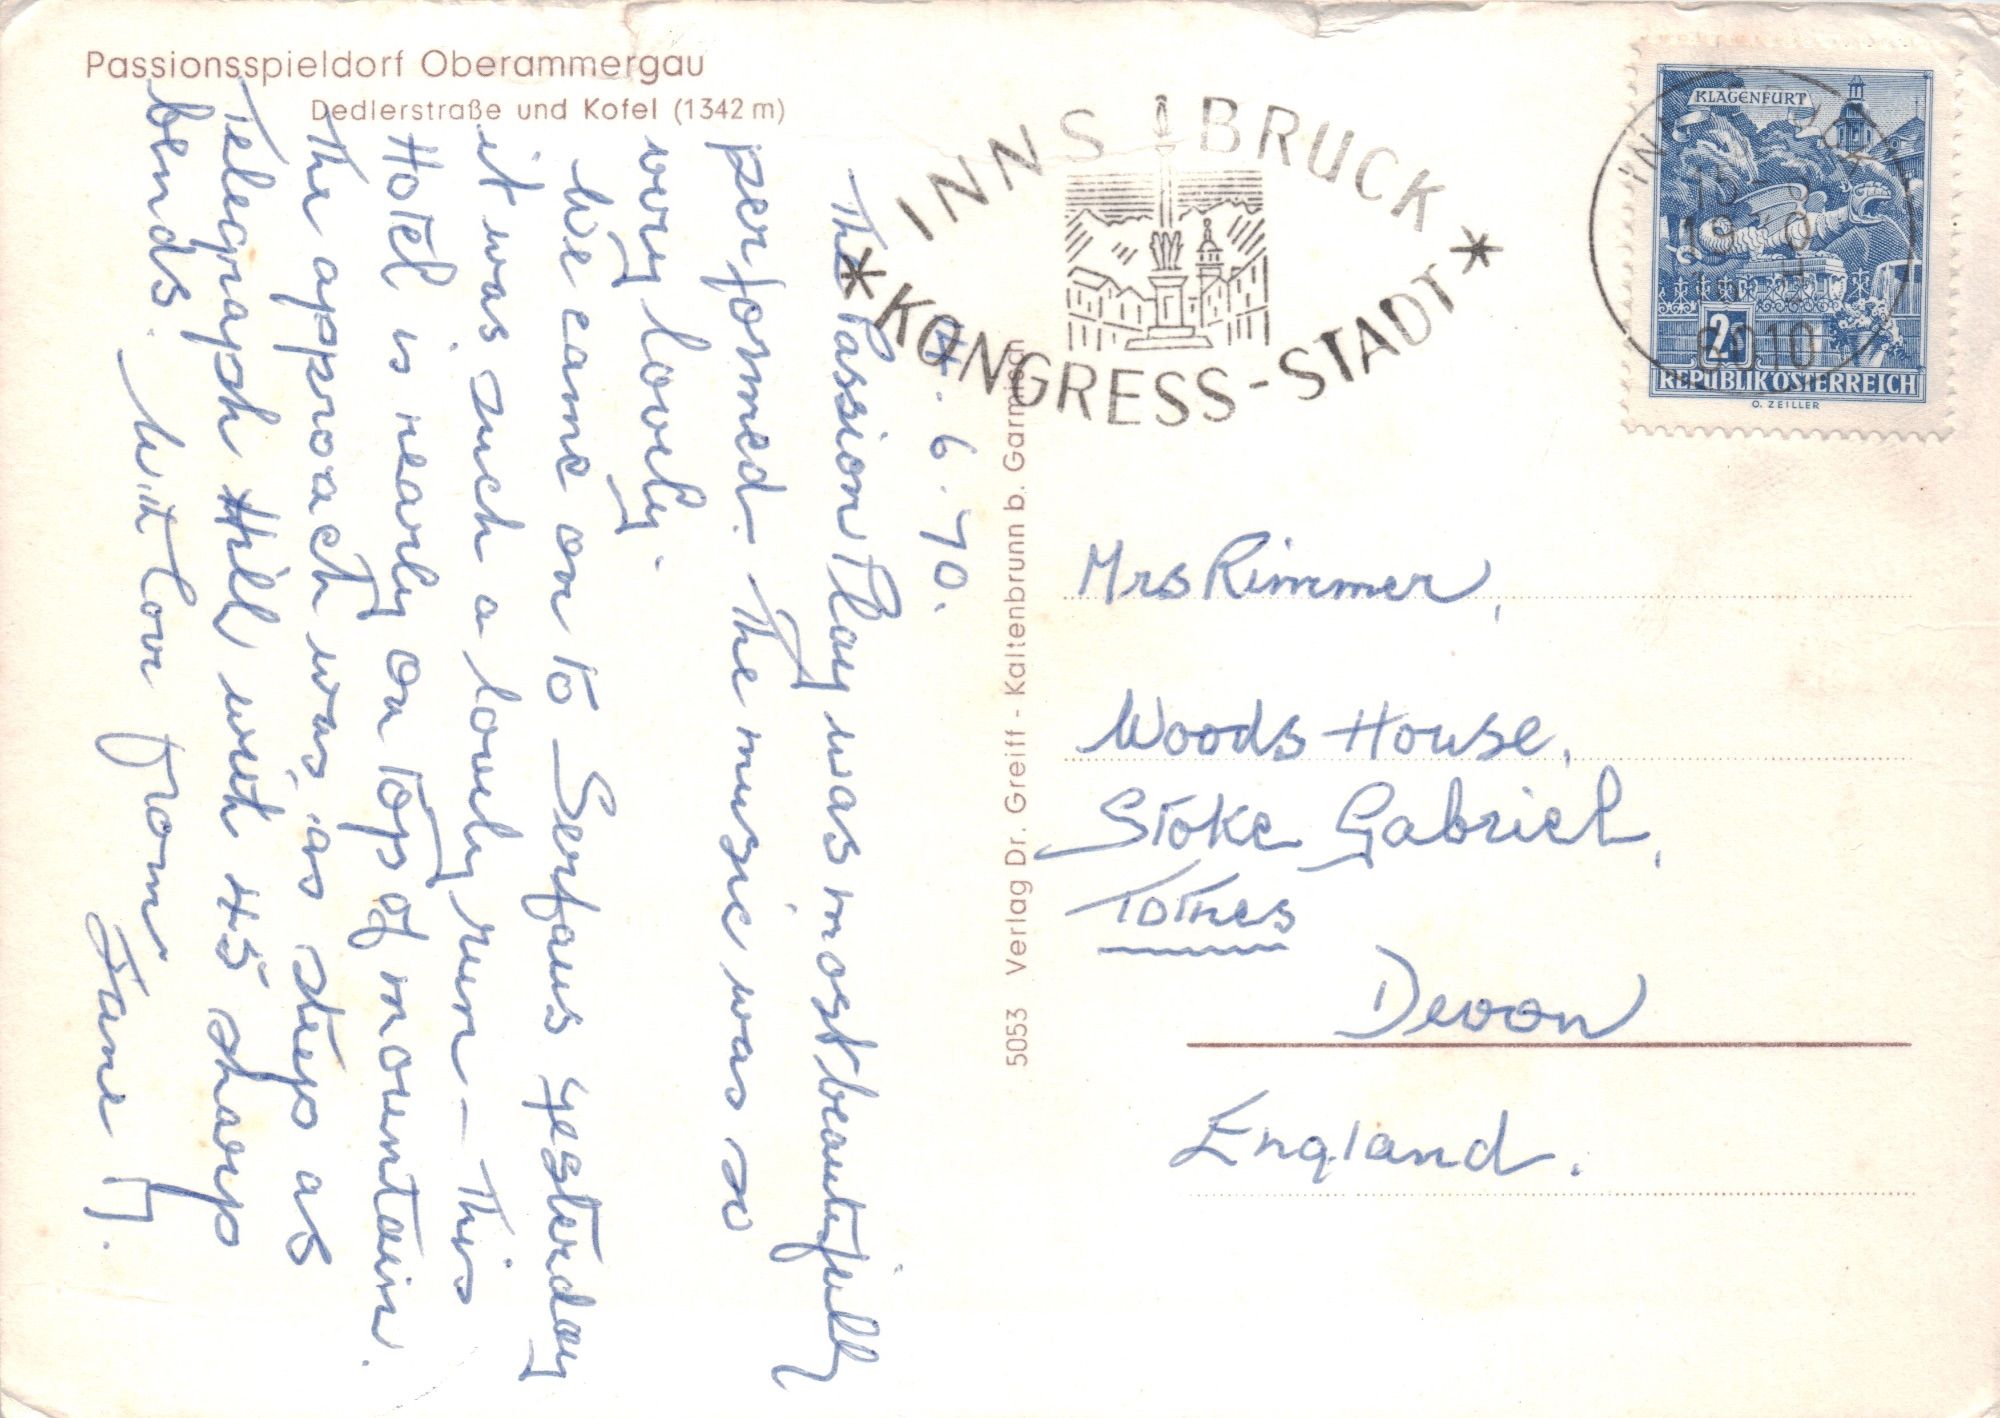 Passionsspieldorf Oberammergau
Dedlerstraße und Kofel (1342 m)
INNSBRUCK
* KONGRESS-STADT *
KLAGENFURT
2s
REPUBLIK ÖSTERREICH
O. ZEILLER
6010
.6.70.
The Passion Play was most beautifully
performed. The music was so
very lovely.
We came on to Serfaus yesterday
it was such a lovely run - This
Hotel is nearly on top of mountain.
The approach was as steep as
Telegraph Hill with 45 sharp
bends. With love from
Jane H.
5053 Verlag Dr. Greiff - Kaltenbrunn b. Garmisch
Mrs Rimmer,
Woods House,
Stoke Gabriel,
Totnes
Devon
England.